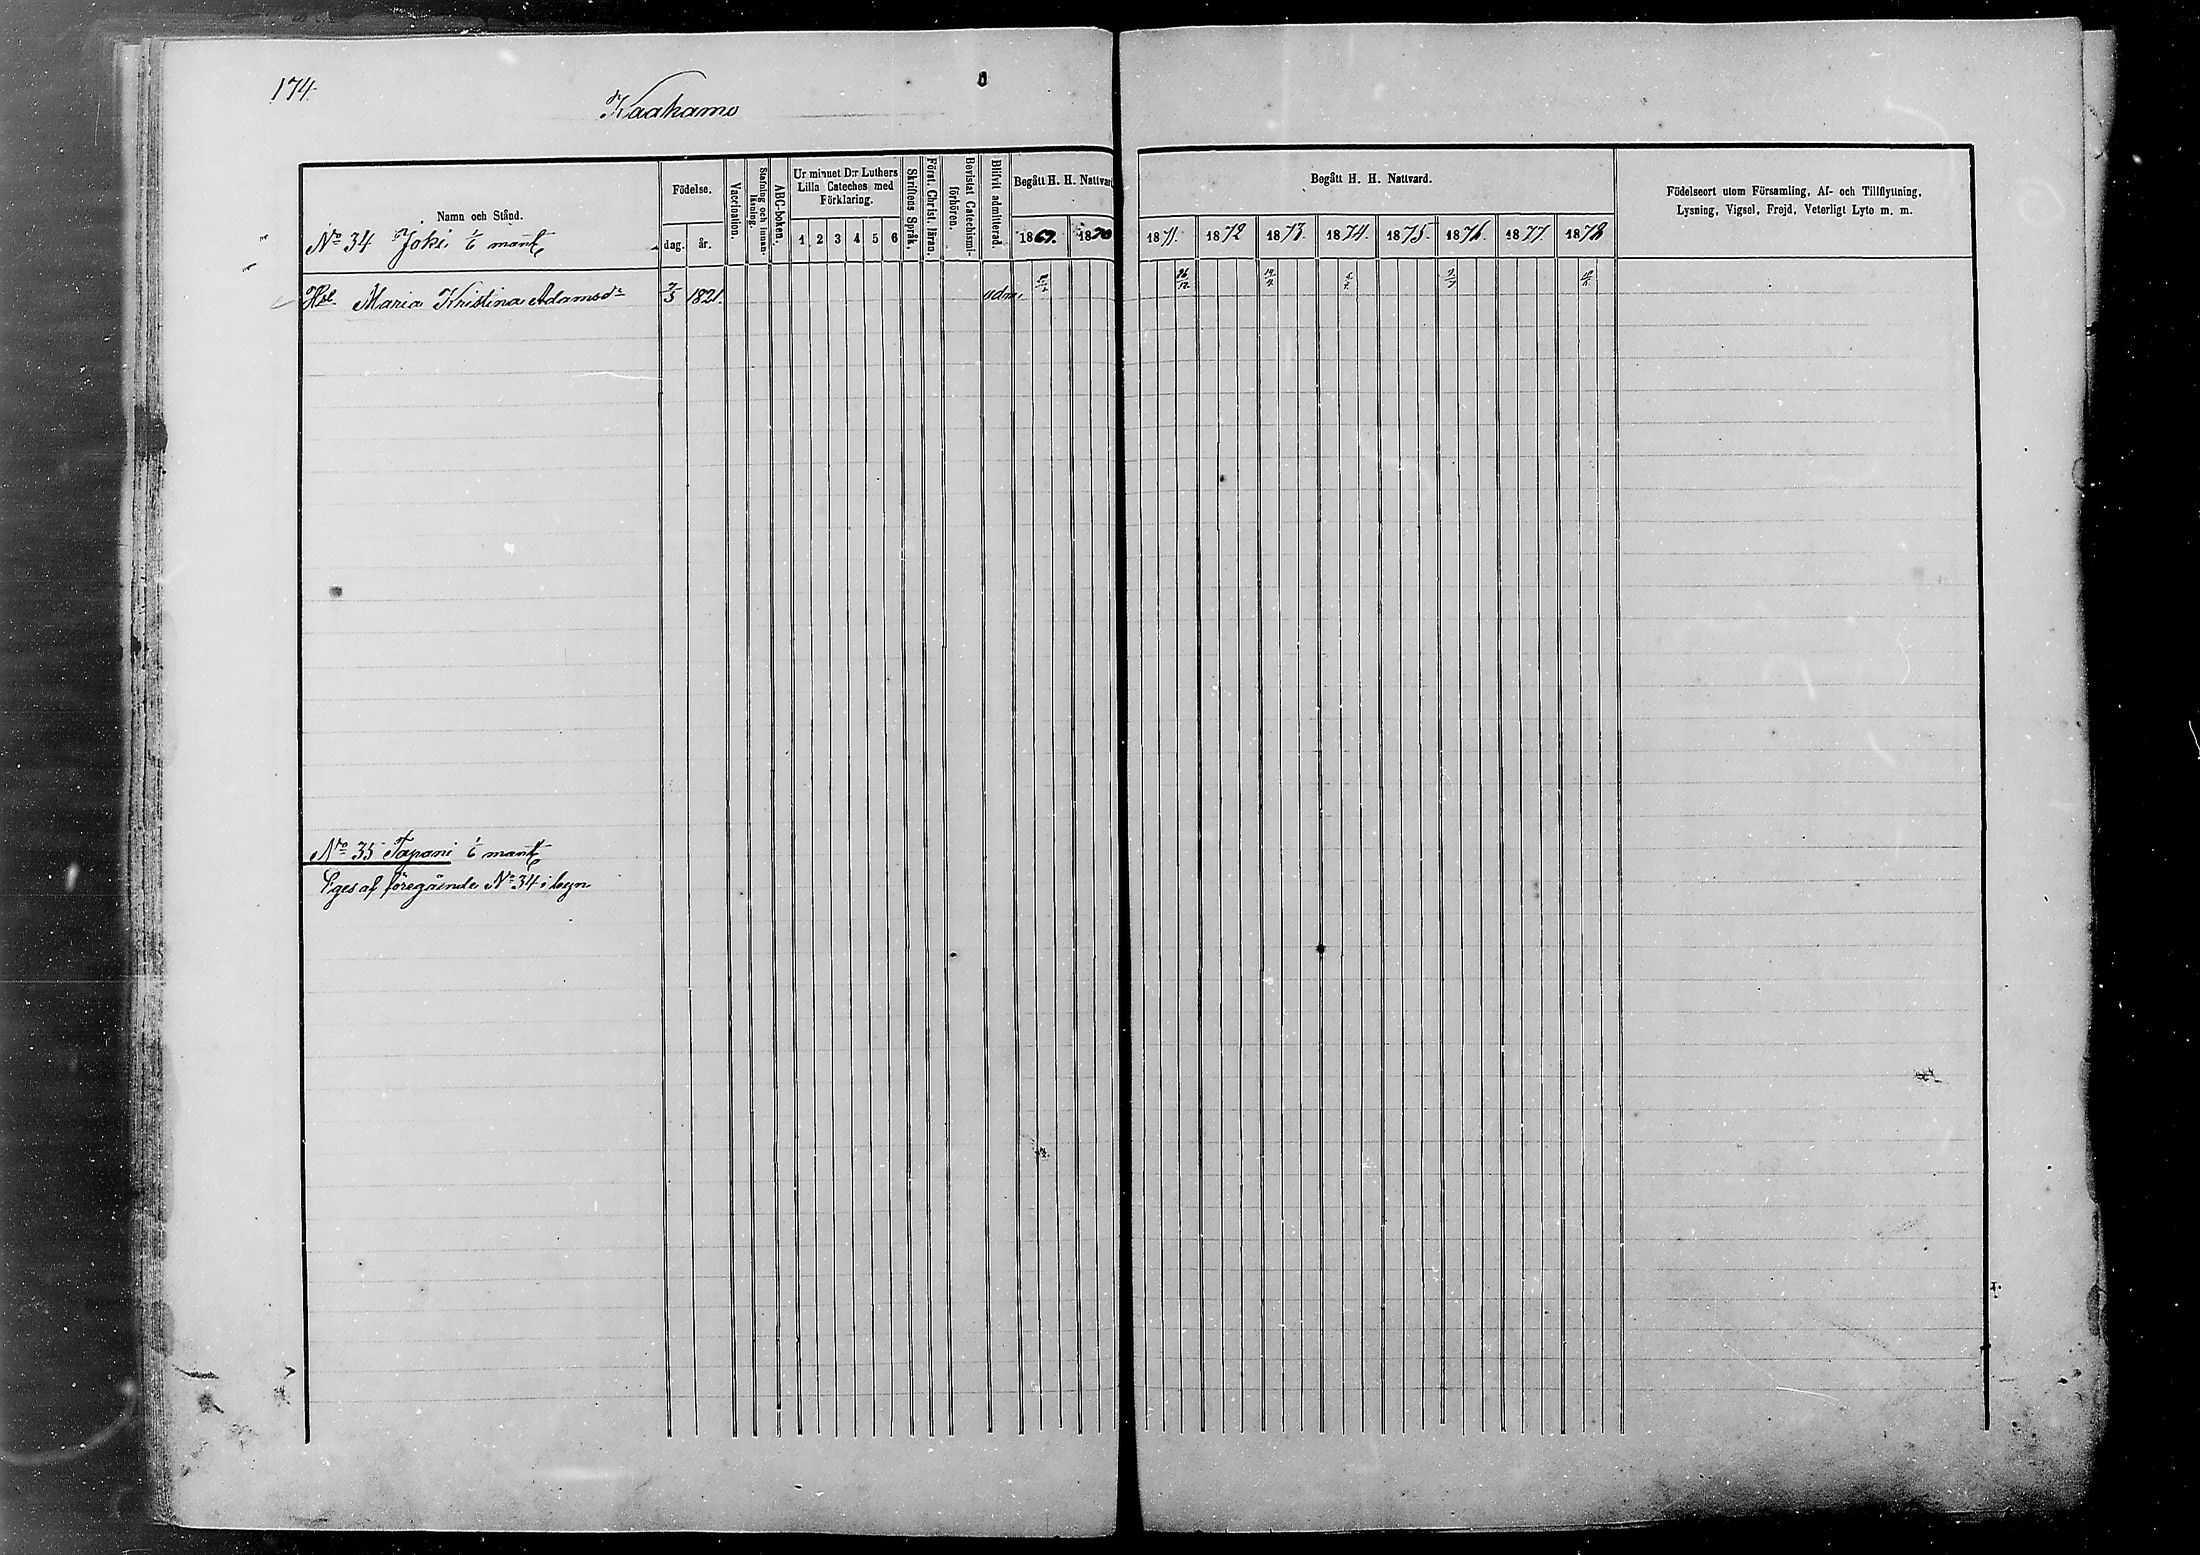 174.
Kaakamo
Namn och Stånd.
Födelse.
dag.
år.
Vaccination.
Stafning och innan-
läsning.
ABC-boken.
Ur minnet D:r Luthers
Lilla Cateches med
Förklaring.
1 2 3 4 5 6
Skriftens Språk.
Först. Christ. läran.
Bevistat Catechismi-
förhören.
Blifvit admitterad.
Begått H. H. Nattvard
1869. 1870
Begått H. H. Nattvard.
1871. 1872 1873. 1874. 1875. 1876. 1877. 1878
Födelseort utom Församling, Af- och Tillflyttning,
Lysning, Vigsel, Frejd, Veterligt Lyte m. m.
No 34 Joki 1/6 mant.
Maria Kristina Adamsdr 7/3 1821. adm.
26/12
No 35 Tapani 1/6 mant.
Eges af föregående No 34 i byn